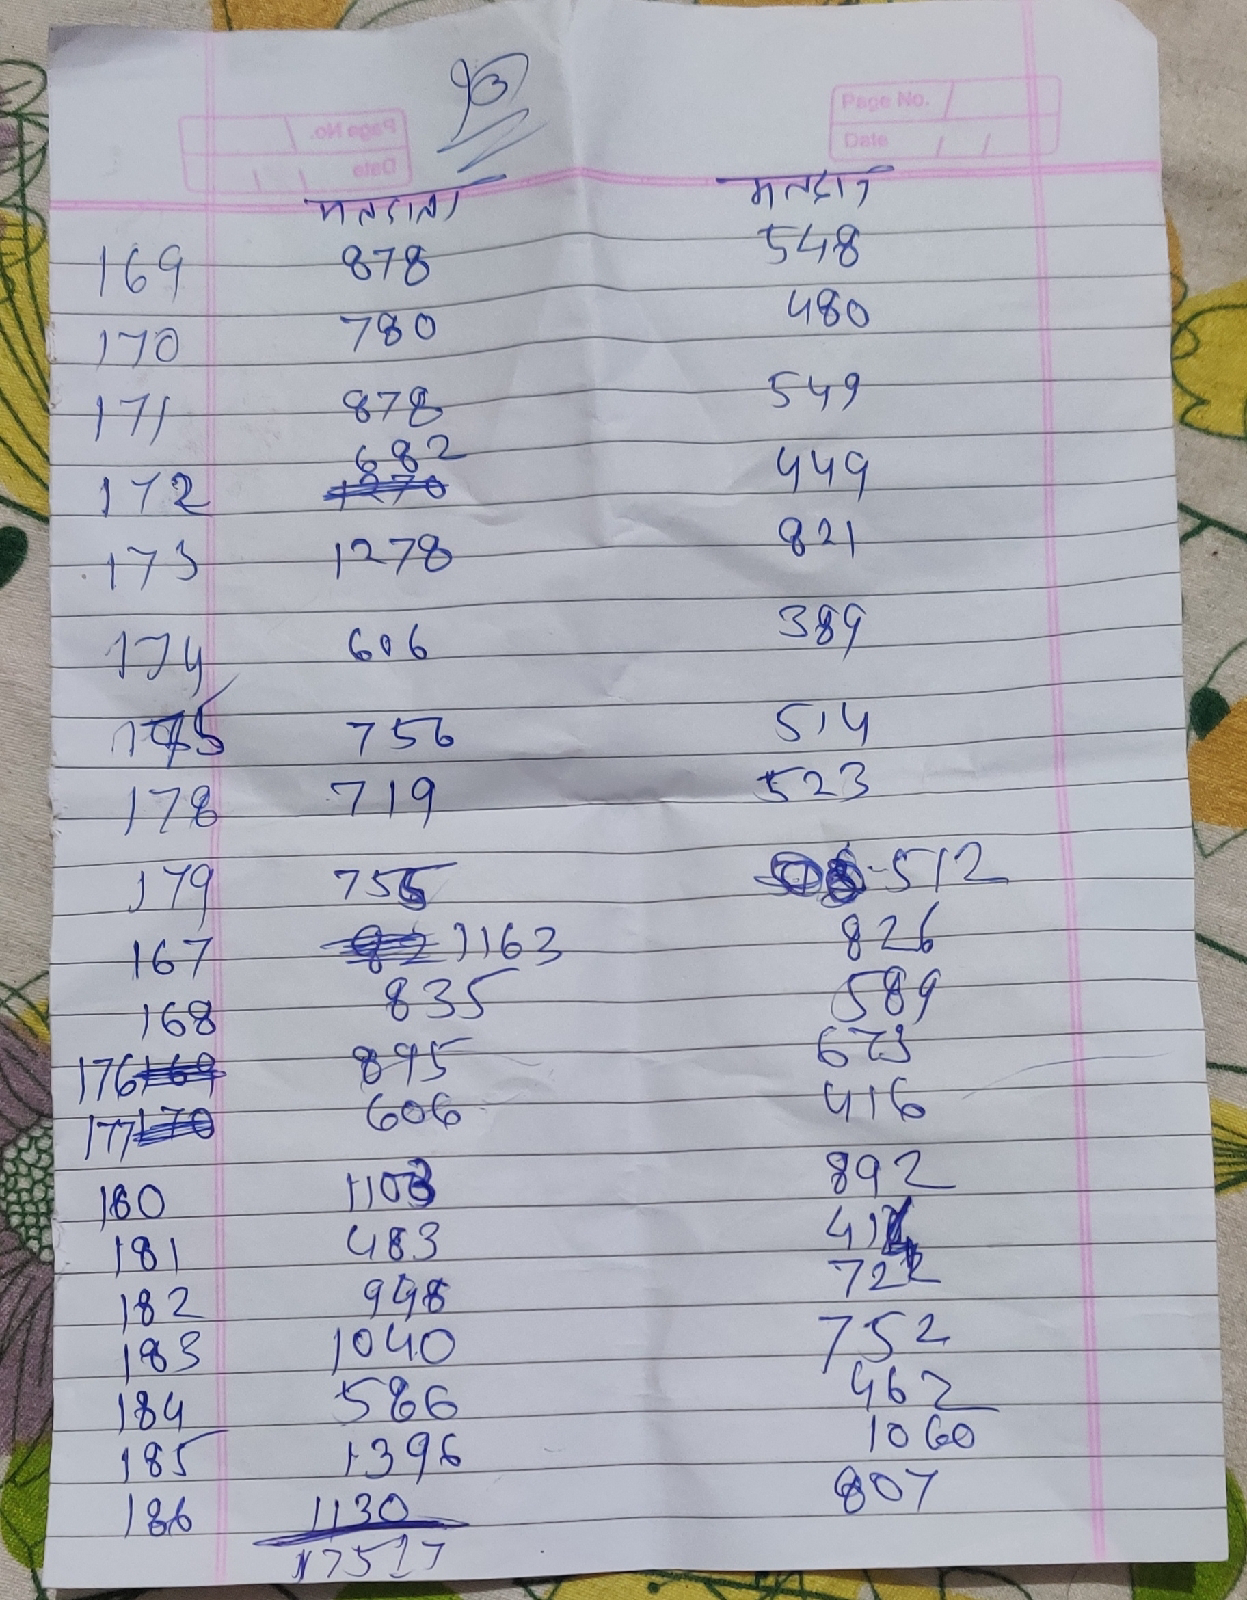 93
Page No.
Date / /
मतदाता मतदान
169 878 548
170 780 480
171 878 549
682
172 1270 449
173 1278 821
174 606 389
175 756 514
178 719 523
179 755 512
167 1163 826
168 835 589
176 169 895 673
177 170 606 416
180 1103 892
181 483
182 948 722
183 1040 752
184 586 462
185 1396 1060
186 1130 807
17517